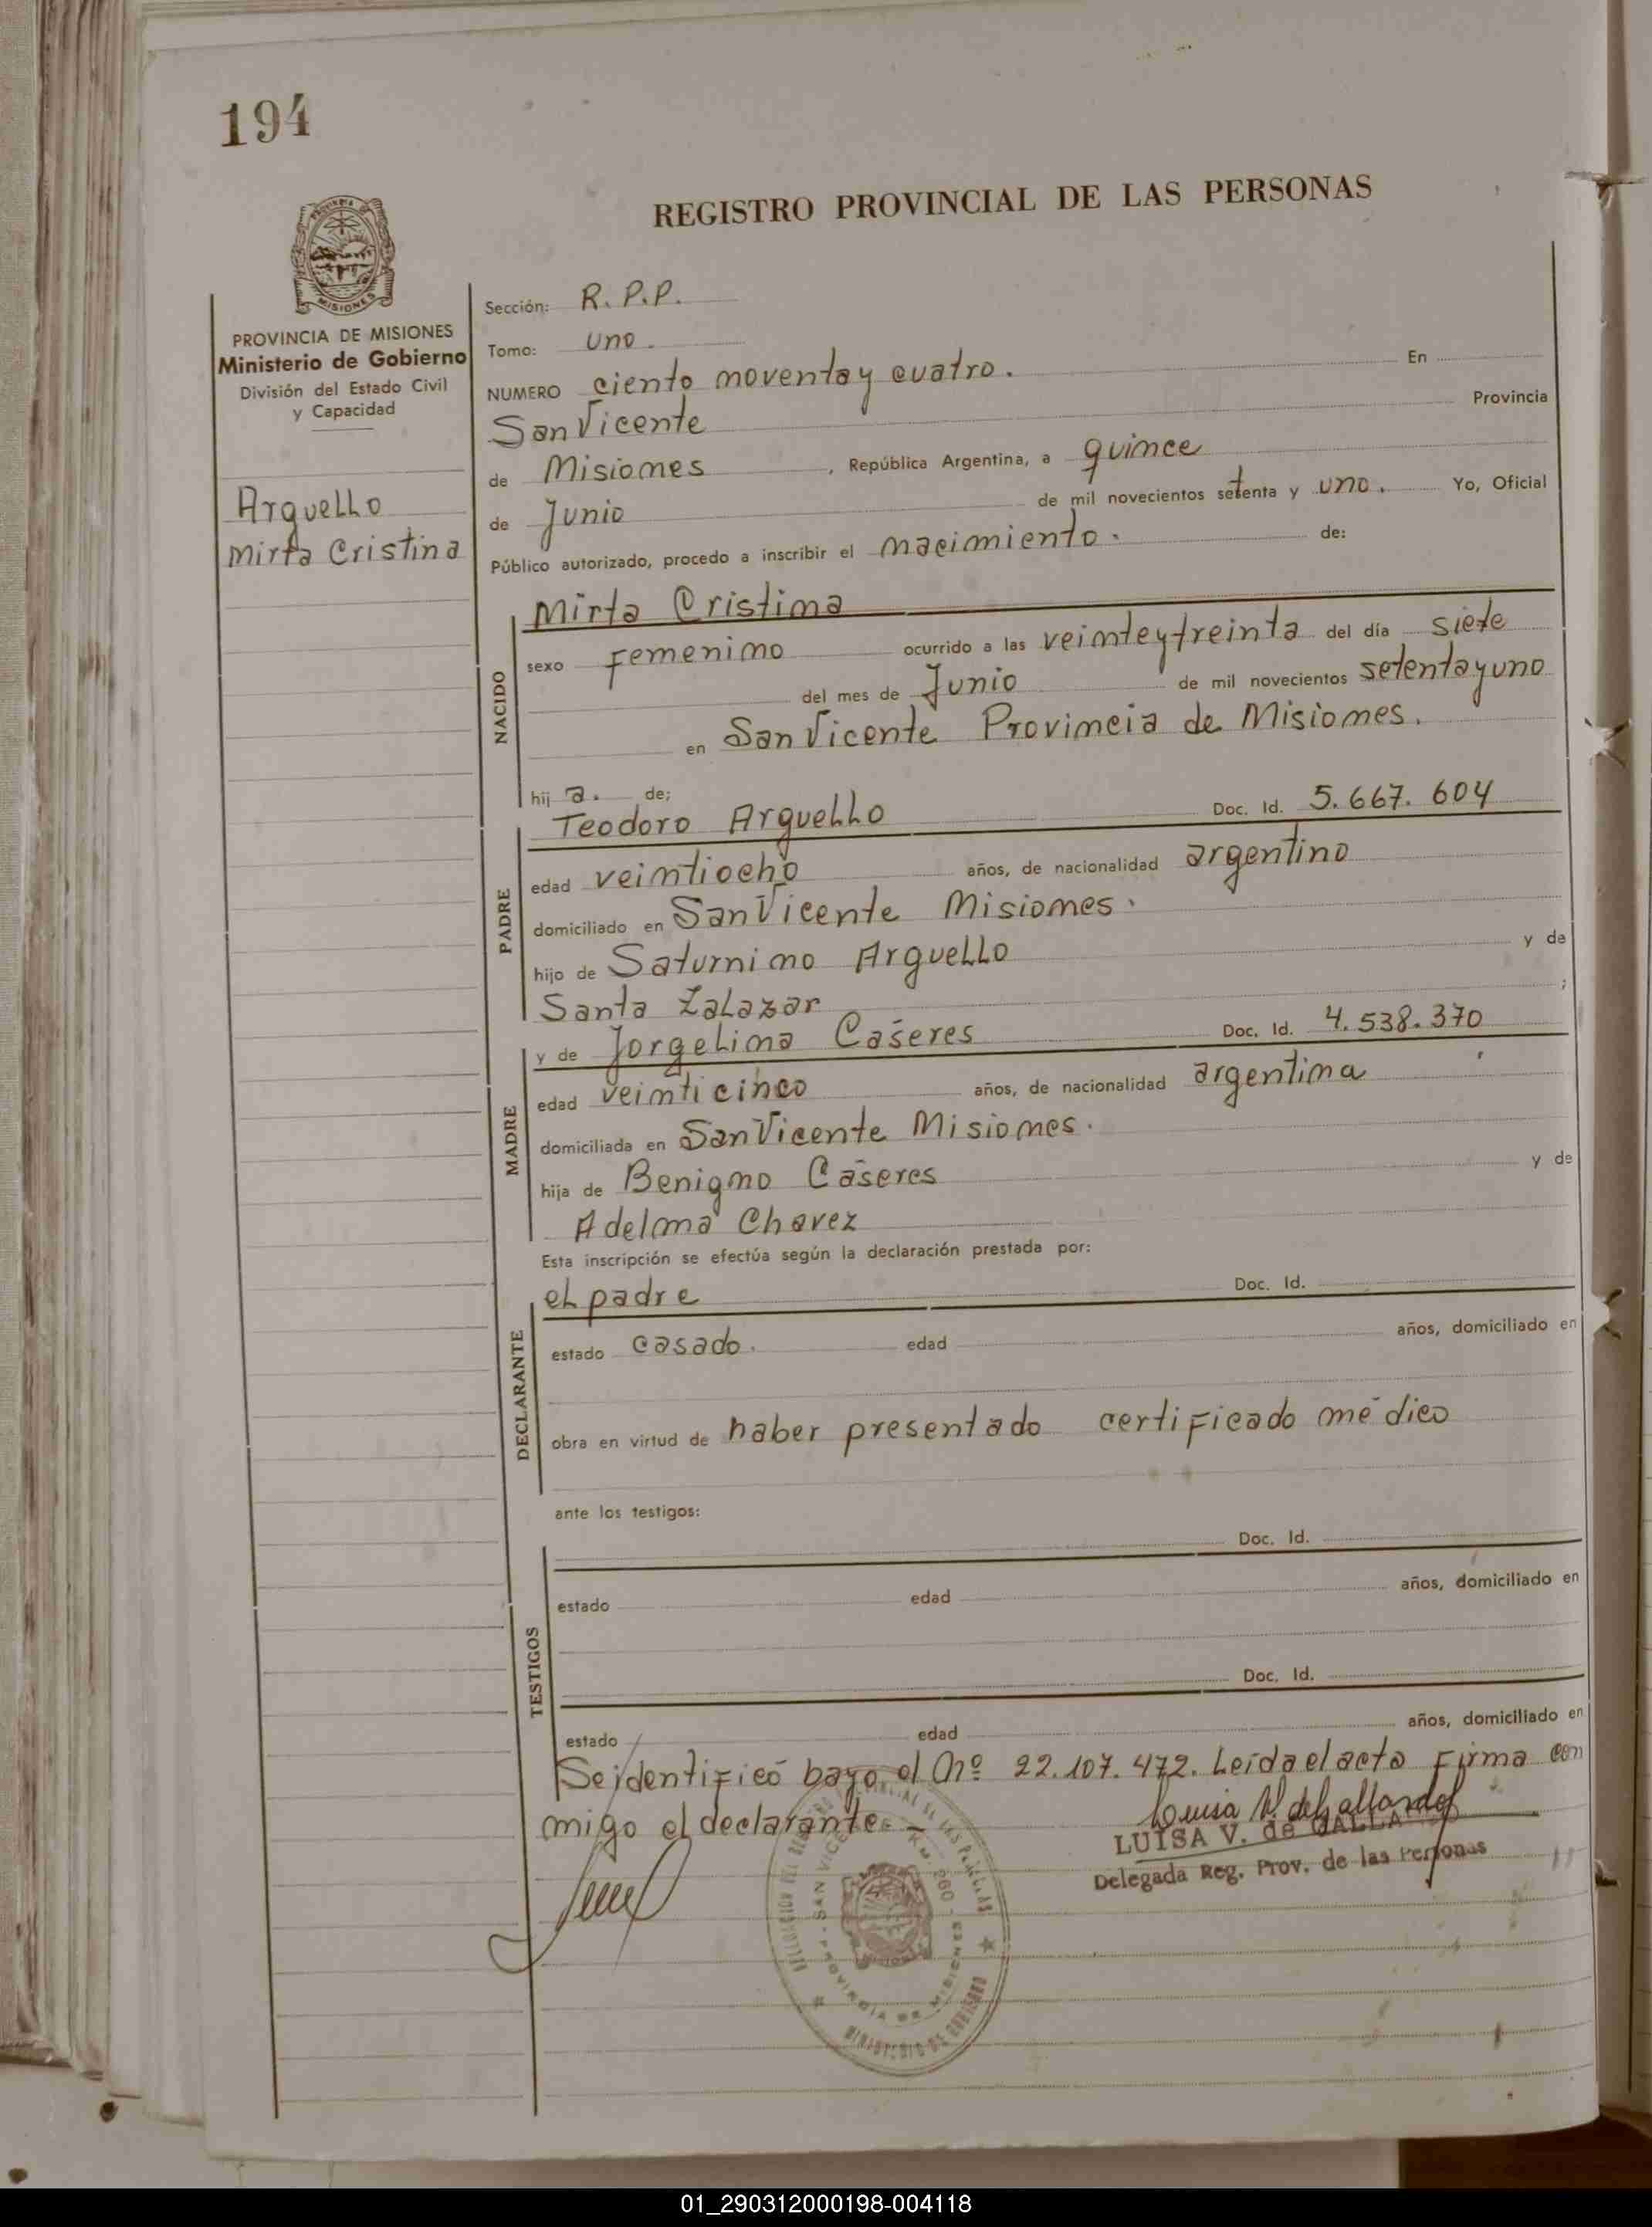 194
REGISTRO PROVINCIAL DE LAS PERSONAS
MISIONES
PROVINCIA DE MISIONES
Ministerio de Gobierno
División del Estado Civil
y Capacidad
Arguello
Mirta Cristina
Sección: R.P.P.
Tomo: uno.
NUMERO ciento noventa y cuatro. En
San Vicente Provincia
de Misiones , República Argentina, a quince
de Junio de mil novecientos setenta y uno. Yo, Oficial
Público autorizado, procedo a inscribir el nacimiento. de:
NACIDO
Mirta Cristina
sexo Femenino ocurrido a las veinte y treinta del día siete
del mes de Junio de mil novecientos setenta y uno
en San Vicente Provincia de Misiones.
hij a. de;
PADRE
Teodoro Arguello Doc. Id. 5.667.604
edad veintiocho años, de nacionalidad argentino
domiciliado en San Vicente Misiones.
hijo de Saturnino Arguello y de
Santa Zalazar ;
MADRE
y de Jorgelina Caseres Doc. Id. 4.538.370
edad veinticinco años, de nacionalidad argentina
domiciliada en San Vicente Misiones.
hija de Benigno Caseres y de
Adelma Chavez
Esta inscripción se efectúa según la declaración prestada por:
DECLARANTE
el padre Doc. Id.
estado casado. edad años, domiciliado en
obra en virtud de haber presentado certificado médico
ante los testigos:
TESTIGOS
Doc. Id.
estado edad años, domiciliado en
Doc. Id.
estado edad años, domiciliado en
Se identificó bayo el Nº 22.107.472. Leida el acta Firma con
migo el declarante.-
Luisa V. de Gallardo
LUISA V. de GALLA
Delegada Reg. Prov. de las Personas
DELEGACION DEL REGISTRO PROVINCIAL DE LAS PERSONAS
SAN VICENTE - KM. 260 -
PROVINCIA DE MISIONES
MINISTERIO DE GOBIERNO
01_290312000198-004118